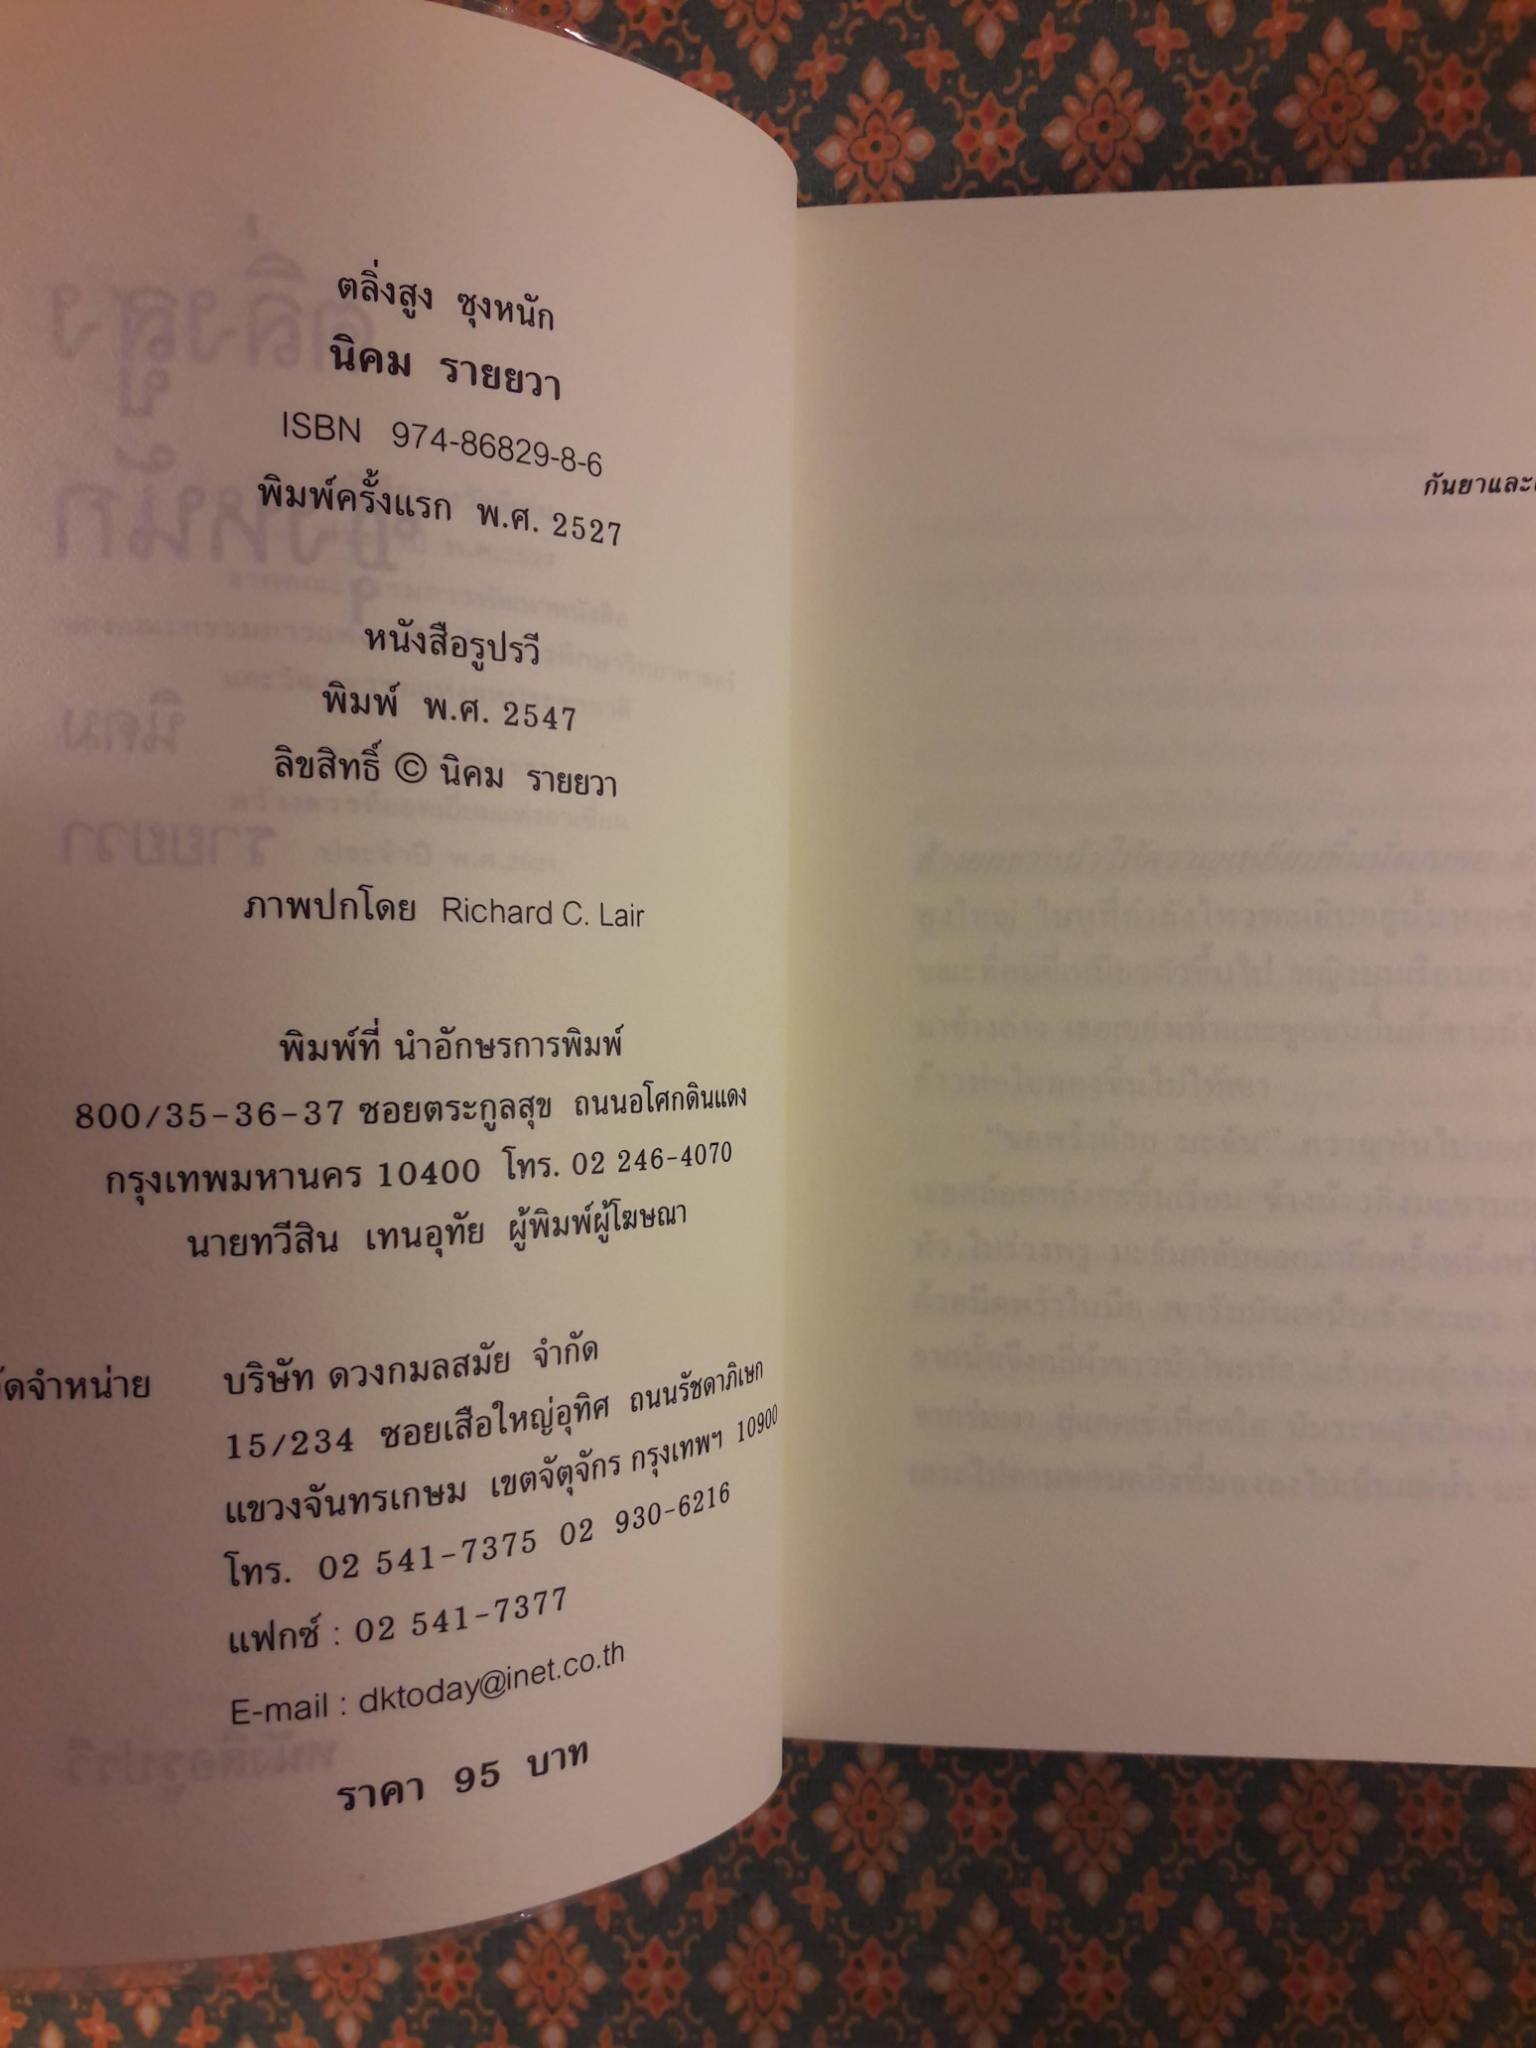 ตลิ่งสูง ซุงหนัก
นิคม รายยวา
ISBN 974-86829-8-6
พิมพ์ครั้งแรก พ.ศ. 2527
หนังสือรูปรวี
พิมพ์ พ.ศ. 2547
ลิขสิทธิ์ © นิคม รายยวา
ภาพปกโดย Richard C. Lair
พิมพ์ที่ นำอักษรการพิมพ์
800/35-36-37 ซอยตระกูลสุข ถนนอโศกดินแดง
กรุงเทพมหานคร 10400 โทร. 02 246-4070
นายทวีสิน เทนอุทัย ผู้พิมพ์ผู้โฆษณา
จัดจำหน่าย บริษัท ดวงกมลสมัย จำกัด
15/234 ซอยเสือใหญ่อุทิศ ถนนรัชดาภิเษก
แขวงจันทรเกษม เขตจัตุจักร กรุงเทพฯ 10900
โทร. 02 541-7375 02 930-6216
แฟกซ์ : 02 541-7377
E-mail : dktoday@inet.co.th
ราคา 95 บาท
กันยาและ